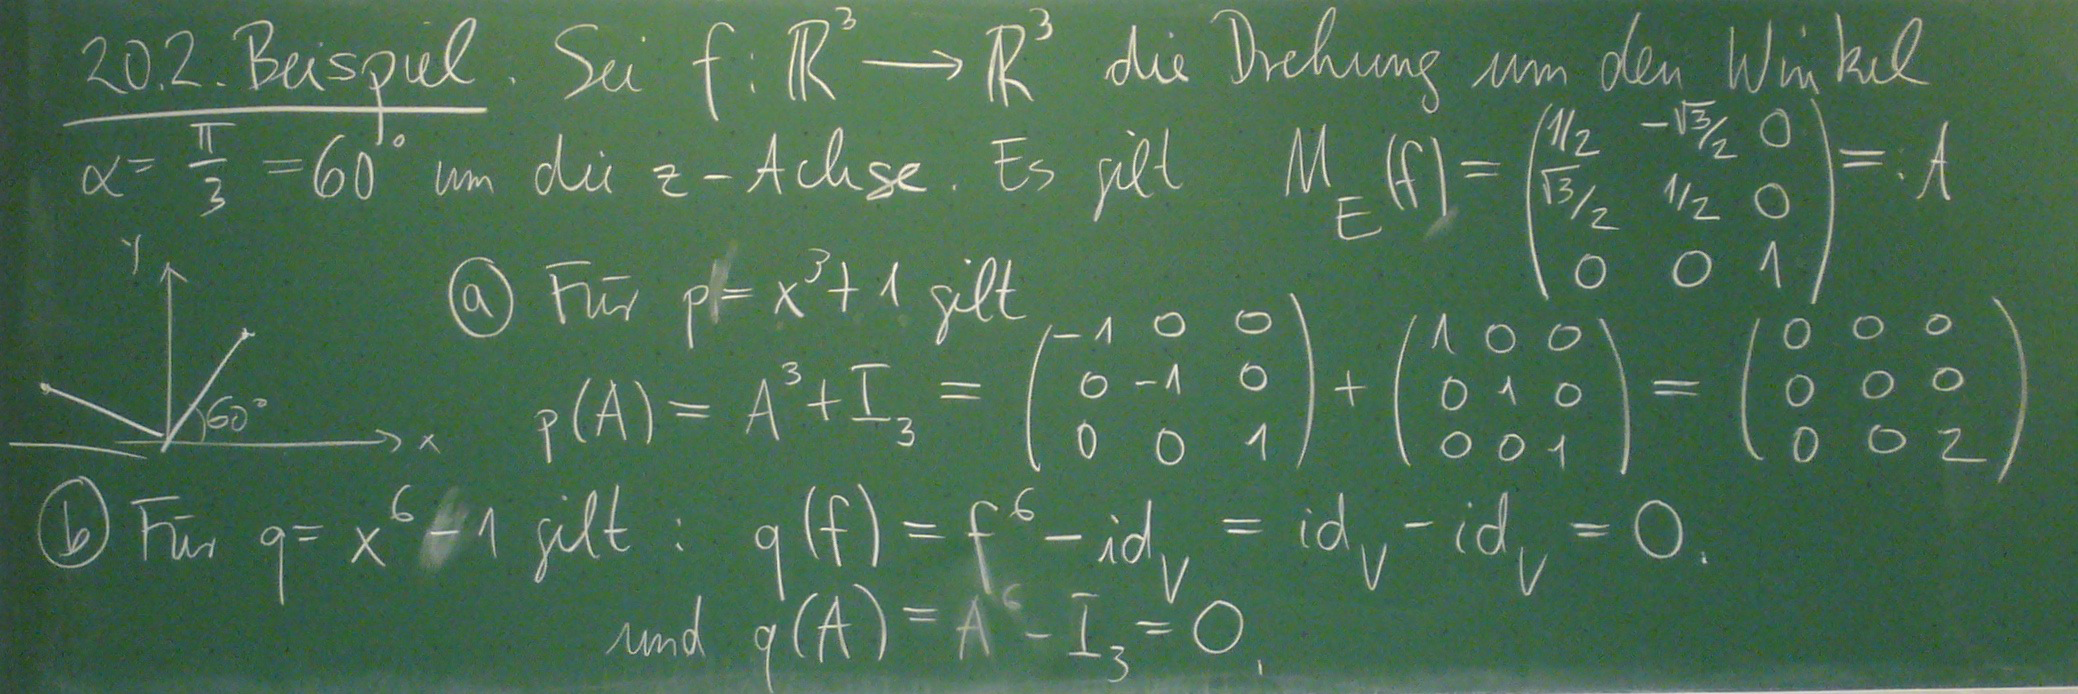 20.2. Beispiel. Sei f: ℝ³ ⟶ ℝ³ die Drehung um den Winkel
α = π/3 = 60° um die z-Achse. Es gilt M_E(f) = (1/2 -√3/2 0; √3/2 1/2 0; 0 0 1) =: A
y
60°
x
ⓐ Für p = x³+1 gilt
p(A) = A³+I₃ = (-1 0 0; 0 -1 0; 0 0 1) + (1 0 0; 0 1 0; 0 0 1) = (0 0 0; 0 0 0; 0 0 2)
ⓑ Für q = x⁶-1 gilt: q(f) = f⁶ - id_V = id_V - id_V = 0.
und q(A) = A⁶ - I₃ = 0.